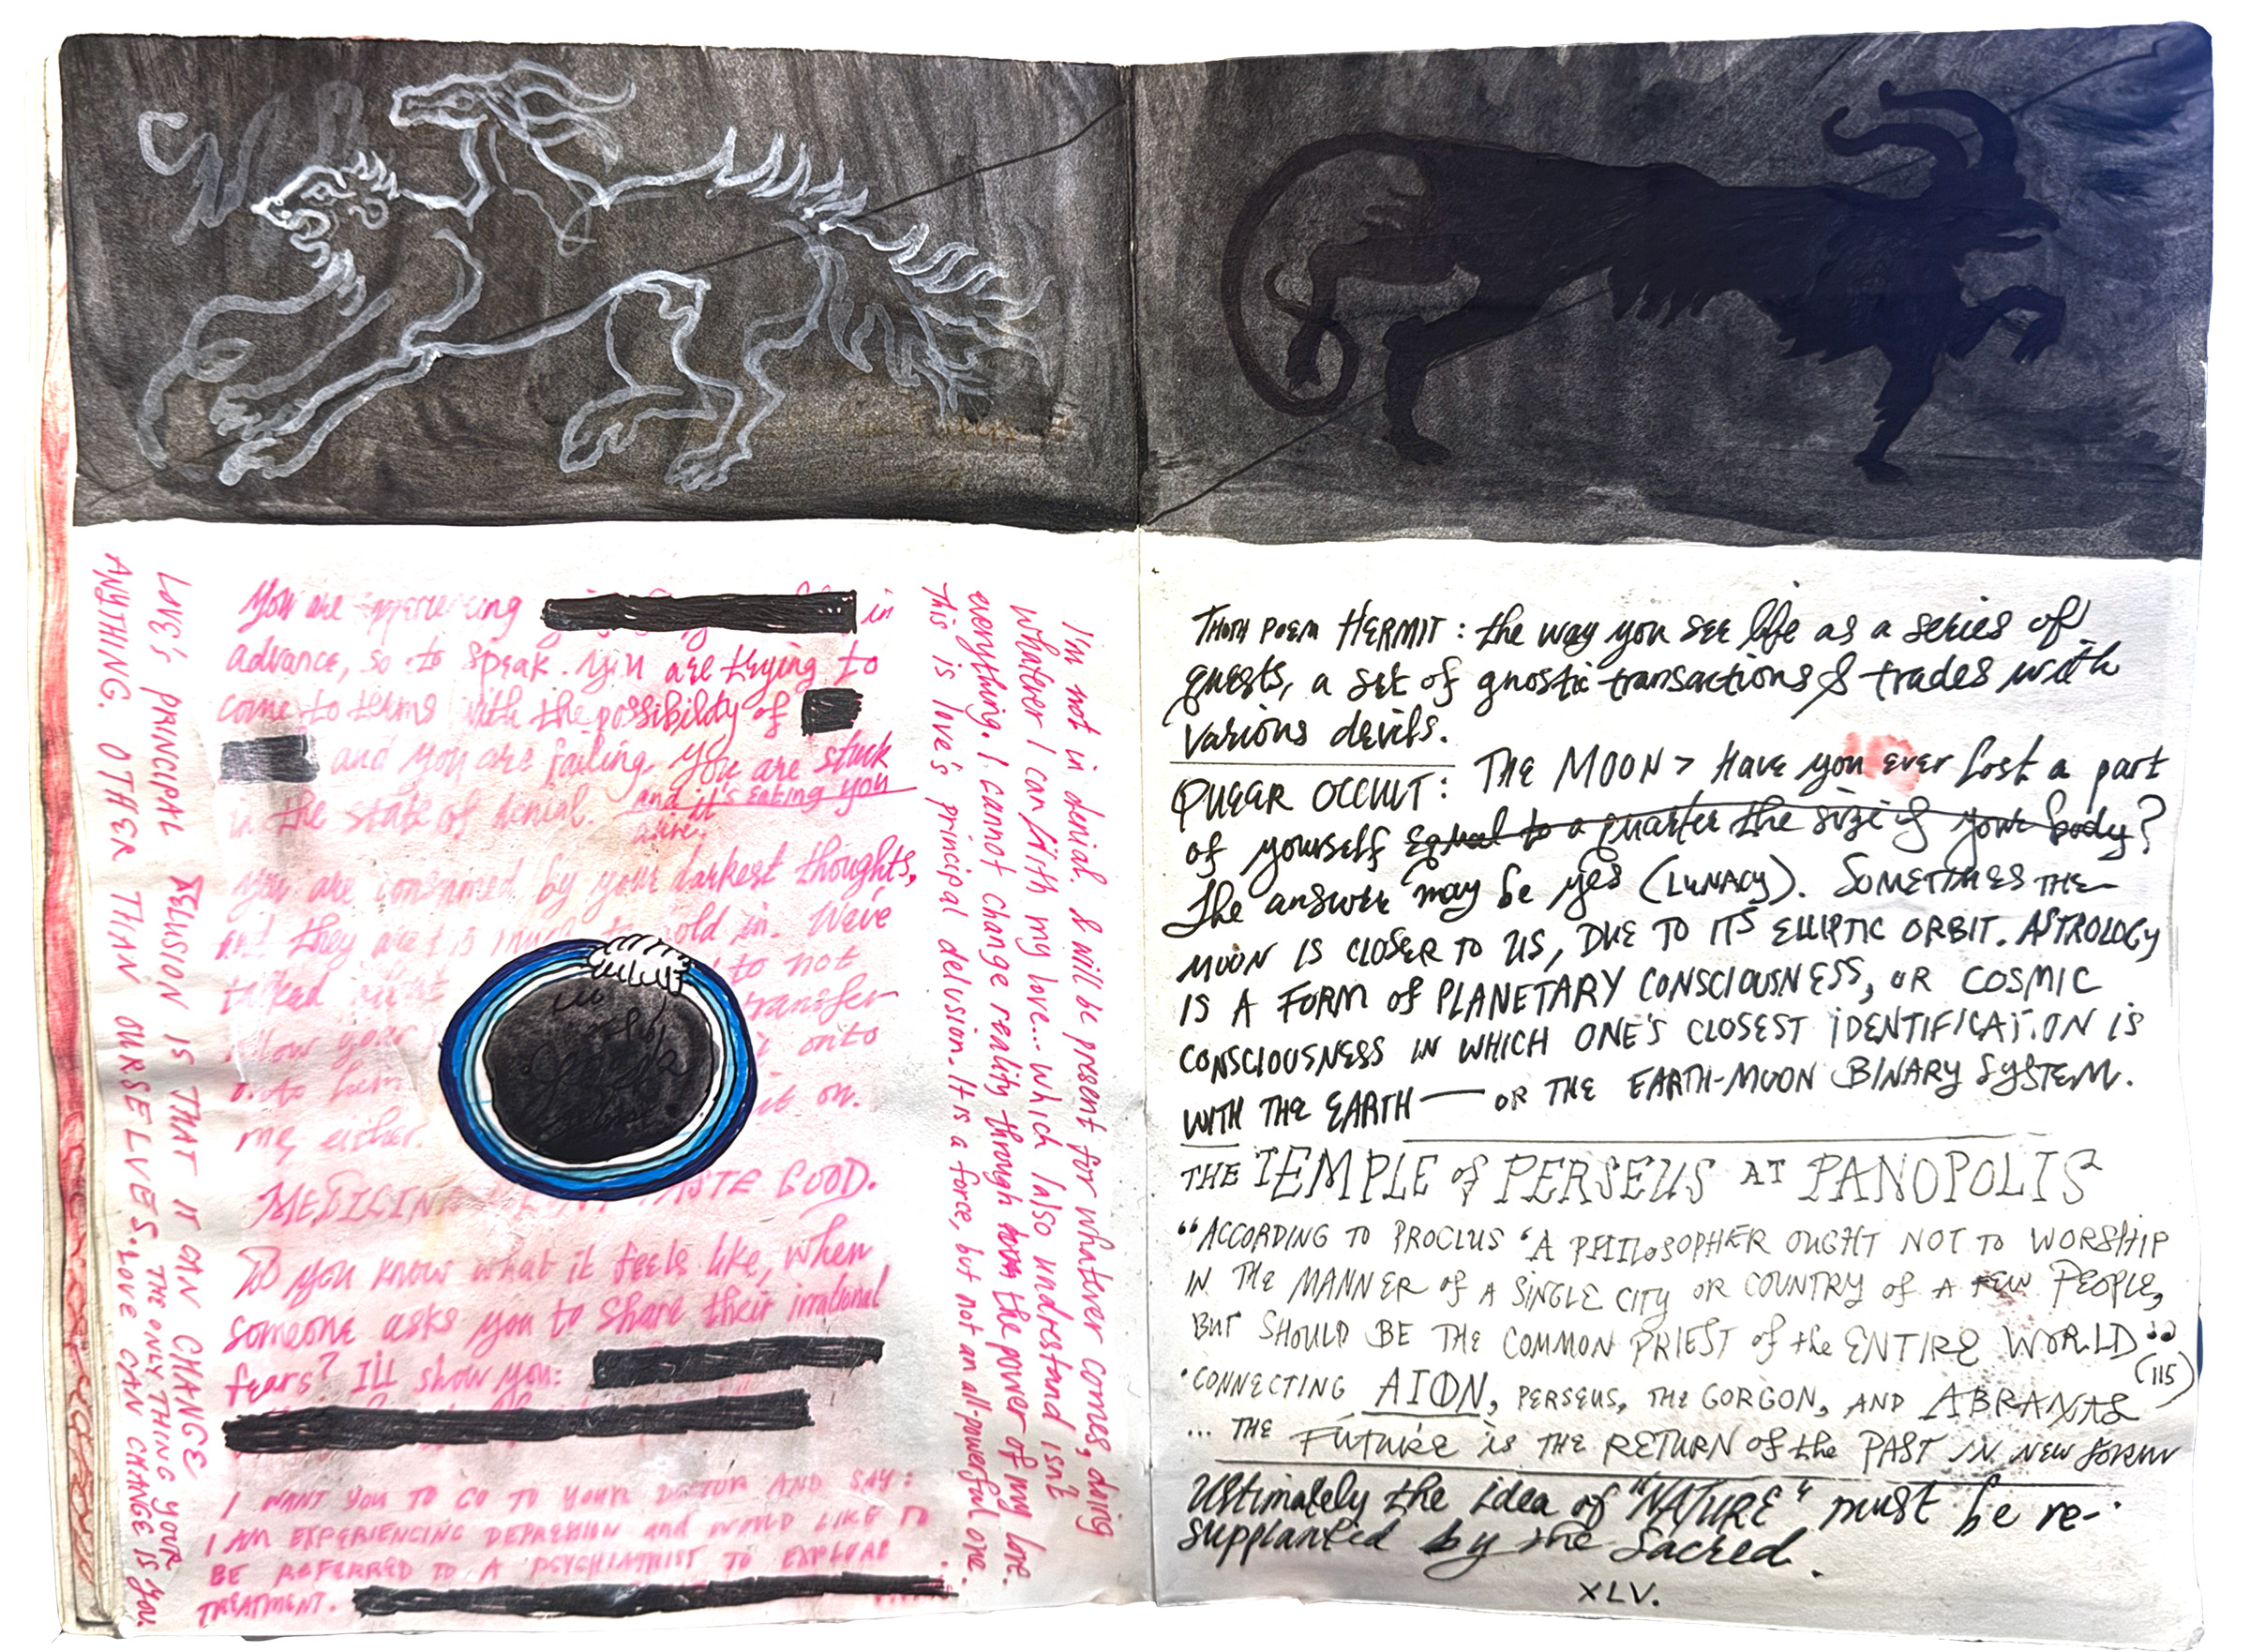 You are experiencing in
advance, so to speak. You are trying to
come to terms with the possibility of
and you are failing. You are stuck
in the state of denial. and it's eating you
alive.
You are consumed by your darkest thoughts,
and they are is much to hold in. We've
talked to not
allow your transfer
onto
onto them it on.
me, either.
MEDICINE TASTE GOOD.
Do you know what it feels like, when
someone asks you to share their irrational
fears? I'll show you:
I WANT YOU TO GO TO YOUR DOCTOR AND SAY:
I AM EXPERIENCING DEPRESSION and WOULD LIKE TO
BE REFERRED TO A PSYCHIATRIST TO EXPLORE
TREATMENT.
I'm not in denial. I will be present for whatever comes, doing
whatever I can with my love... which I also understand isn't
everything. I cannot change reality through the power of my love.
This is love's principal delusion. It is a force, but not an all-powerful one.
LOVE'S PRINCIPAL DELUSION IS THAT IT CAN CHANGE
ANYTHING. OTHER THAN OURSELVES. LOVE CAN CHANGE
THE ONLY THING YOUR
IS YOU.
THOTH POEM HERMIT: the way you see life as a series of
quests, a set of gnostic transactions & trades with
various devils.
QUEER OCCULT: THE MOON > Have you ever lost a part
of yourself equal to a quarter the size of your body?
The answer may be yes (LUNACY). SOMETIMES THE
MOON IS CLOSER TO US, DUE TO ITS ELLIPTIC ORBIT. ASTROLOGY
IS A FORM of PLANETARY CONSCIOUSNESS, OR COSMIC
CONSCIOUSNESS IN WHICH ONE'S CLOSEST IDENTIFICATION IS
WITH THE EARTH — OR THE EARTH-MOON BINARY SYSTEM.
THE TEMPLE of PERSEUS AT PANOPOLIS
"ACCORDING TO PROCLUS 'A PHILOSOPHER OUGHT NOT TO WORSHIP
IN THE MANNER of A SINGLE CITY OR COUNTRY of A FEW PEOPLE,
BUT SHOULD BE THE COMMON PRIEST of the ENTIRE WORLD"
(115)
•CONNECTING AION, PERSEUS, THE GORGON, AND ABRAXAS
... THE FUTURE is THE RETURN of the PAST IN NEW form
Ultimately the idea of "NATURE" must be re-
supplanted by the Sacred.
XLV.